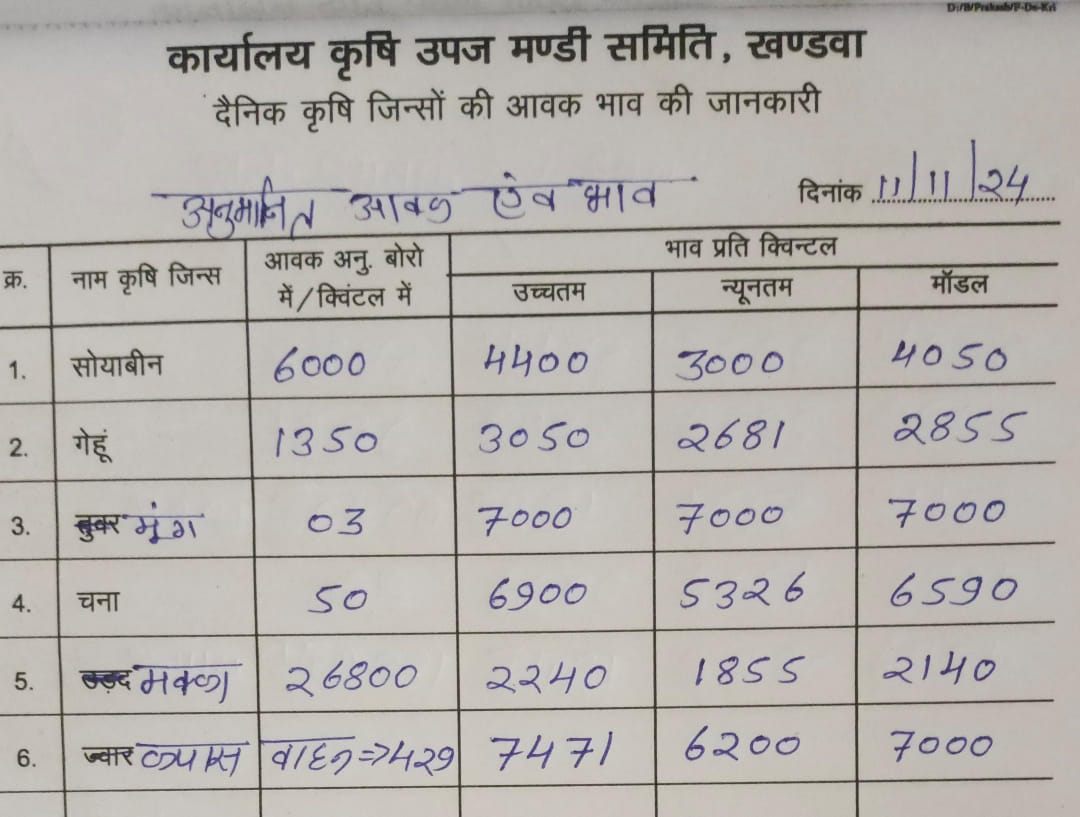 D:/B/Prakash/F-De-Kri
कार्यालय कृषि उपज मण्डी समिति, खण्डवा
दैनिक कृषि जिन्सों की आवक भाव की जानकारी
अनुमानित आवक एंव भाव दिनांक 11/11/24
क्र. नाम कृषि जिन्स आवक अनु. बोरो में/क्विंटल में भाव प्रति क्विन्टल
उच्चतम न्यूनतम मॉडल
1. सोयाबीन 6000 4400 3000 4050
2. गेहूं 1350 3050 2681 2855
3. तुवर मूंग 03 7000 7000 7000
4. चना 50 6900 5326 6590
5. उड़द मक्का 26800 2240 1855 2140
6. ज्वार कपास वाहन=>429 7471 6200 7000